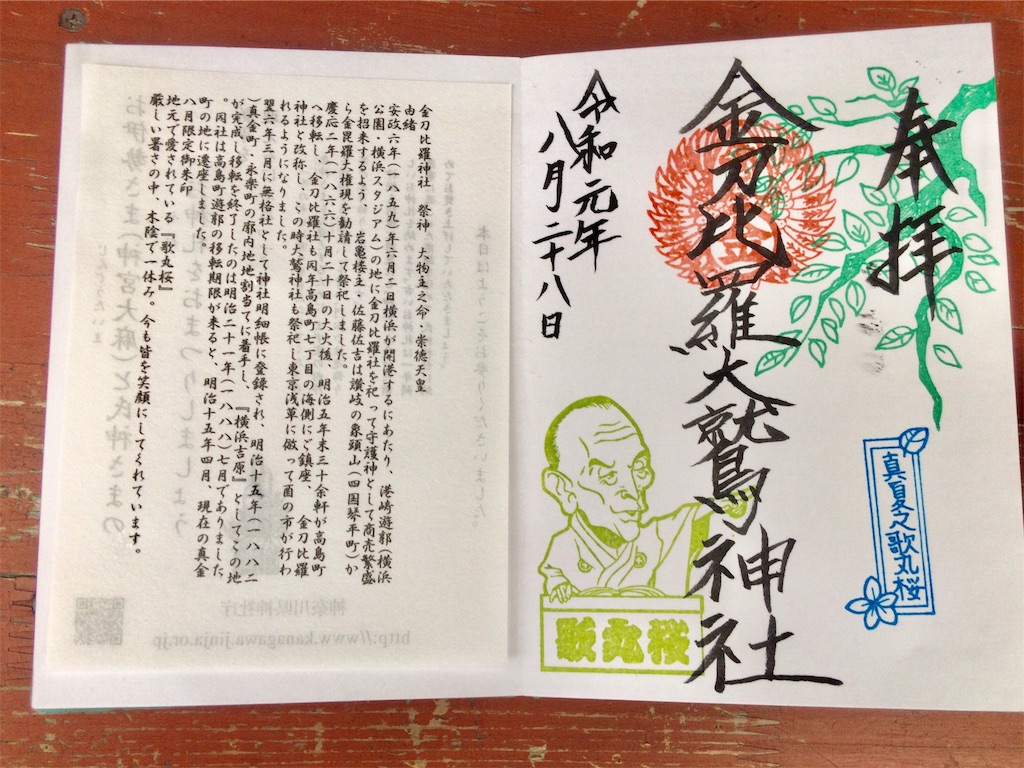 奉拝
金刀比羅大鷲神社
令和元年
八月二十八日
真夏之歌丸桜
歌丸桜
金刀比羅神社　祭神　大物主之命・崇徳天皇
由緒
安政六年(一八五九)年六月二日横浜が開港するにあたり、港崎遊郭(横浜
公園・横浜スタジアム)の地に金刀比羅社を祀って守護神として商売繁盛
を招来するよう、岩亀楼主・佐藤佐吉は讃岐の象頭山(四国琴平町)か
ら金毘羅大権現を勧請して祭祀しました。
慶応二年(一八六六)十月二十日の大火後、明治五年末三十余軒が高島町
へ移転し、金刀比羅社も同年高島町七丁目の海側にご鎮座、　金刀比羅
神社と改称し、この時大鷲神社も祭祀し東京浅草に倣って酉の市が行わ
れるようになりました。
翌六年三月に無格社として神社明細帳に登録され、明治十五年(一八八二
)真金町・永楽町の廓内地地割当てに着手し、　『横浜吉原』としてこの地
が完成し移転を終了したのは明治二十一年(一八八八)七月でありました
。同社は高島町遊郭の移転期限が来ると、明治十五年四月、現在の真金
町の地に遷座しました。
八月限定御朱印
地元で愛されている『歌丸桜』
厳しい暑さの中、木陰で一休み。今も皆を笑顔にしてくれています。
お伊勢さま(神宮大麻)と氏神さまの
神奈川県神社庁
http://www.kanagawa.jinja.or.jp